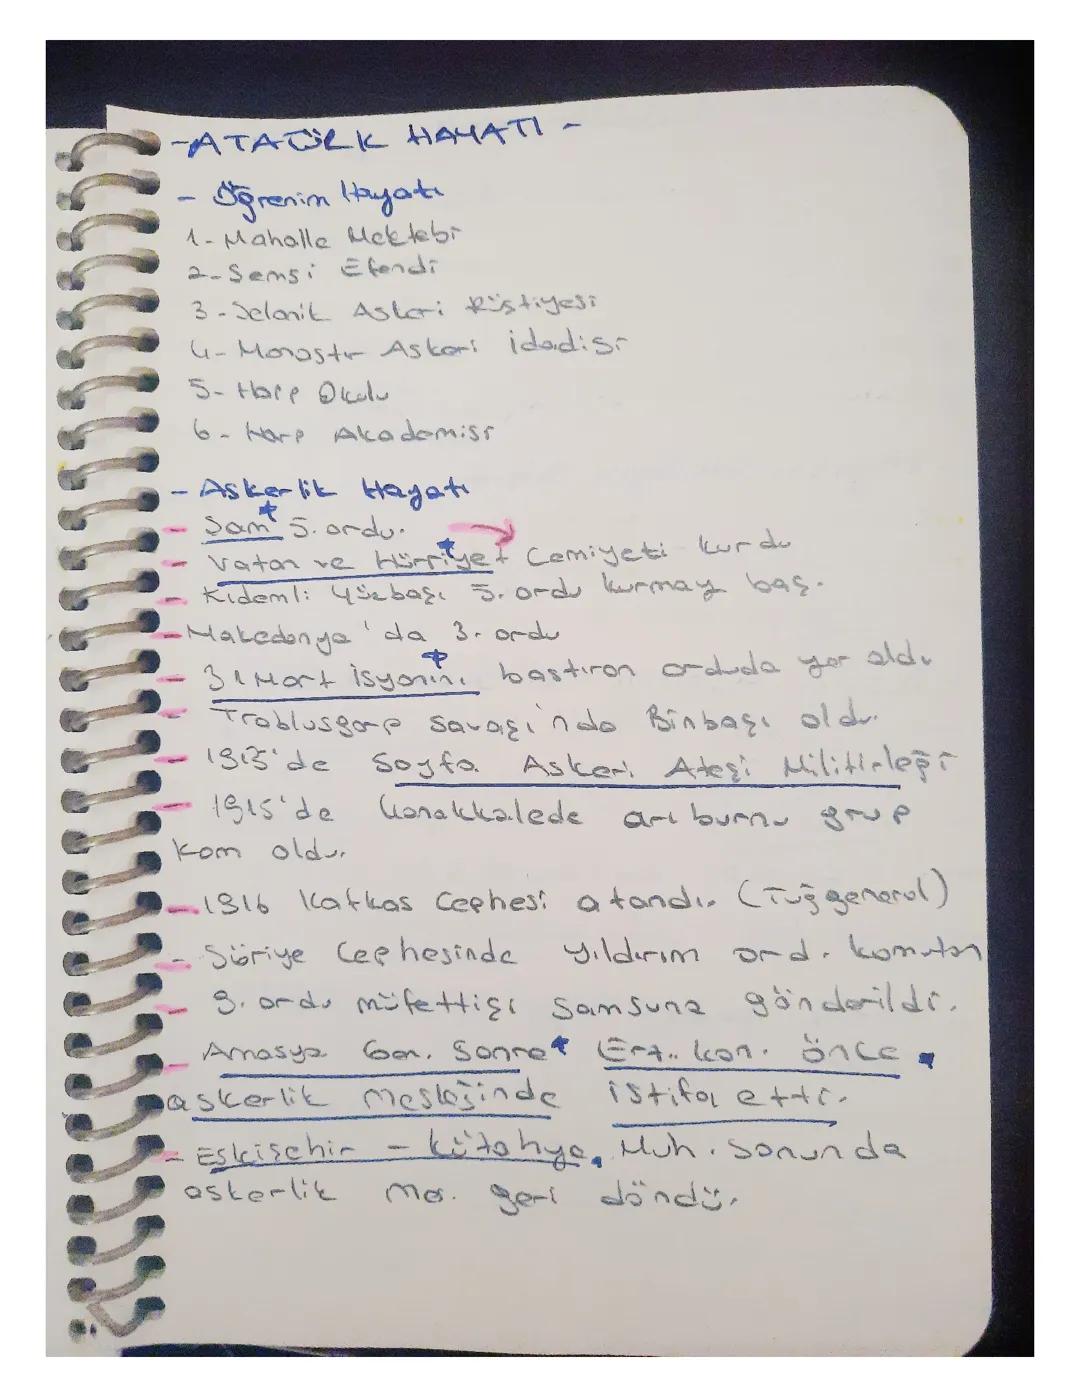 -ATATÜRK HAYATI -
- Öğrenim Hayatı
1- Mahalle Mektebi
2- Şemsi Efendi
3- Selanik Askeri Rüştiyesi
4- Manastır Askeri İdadisi
5- Harp Okulu
6- Harp Akademisi
- Askerlik Hayatı
- Şam 5. ordu.
- Vatan ve Hürriyet Cemiyeti kurdu
- Kıdemli Yüzbaşı 5. ordu kurmay baş.
- Makedonya'da 3. ordu
- 31 Mart isyanını bastıran orduda yer aldı
- Trablusgarp savaşı'nda Binbaşı oldu.
- 1913'de Sofya Askeri Ateşi
- 1915'de Çanakkalede arıburnu grup
kom oldu.
- 1916 Kafkas Cephesi atandı. (Tuğgeneral)
- Süriye Cephesinde Yıldırım ord. komutan
- 9. ordu müfettişi Samsuna gönderildi.
- Amasya Gen. Sonra Erz. kon. önce
askerlik mesleğinde istifa etti.
- Eskişehir - Kütahya Muh. sonunda
askerlik mes. geri döndü.